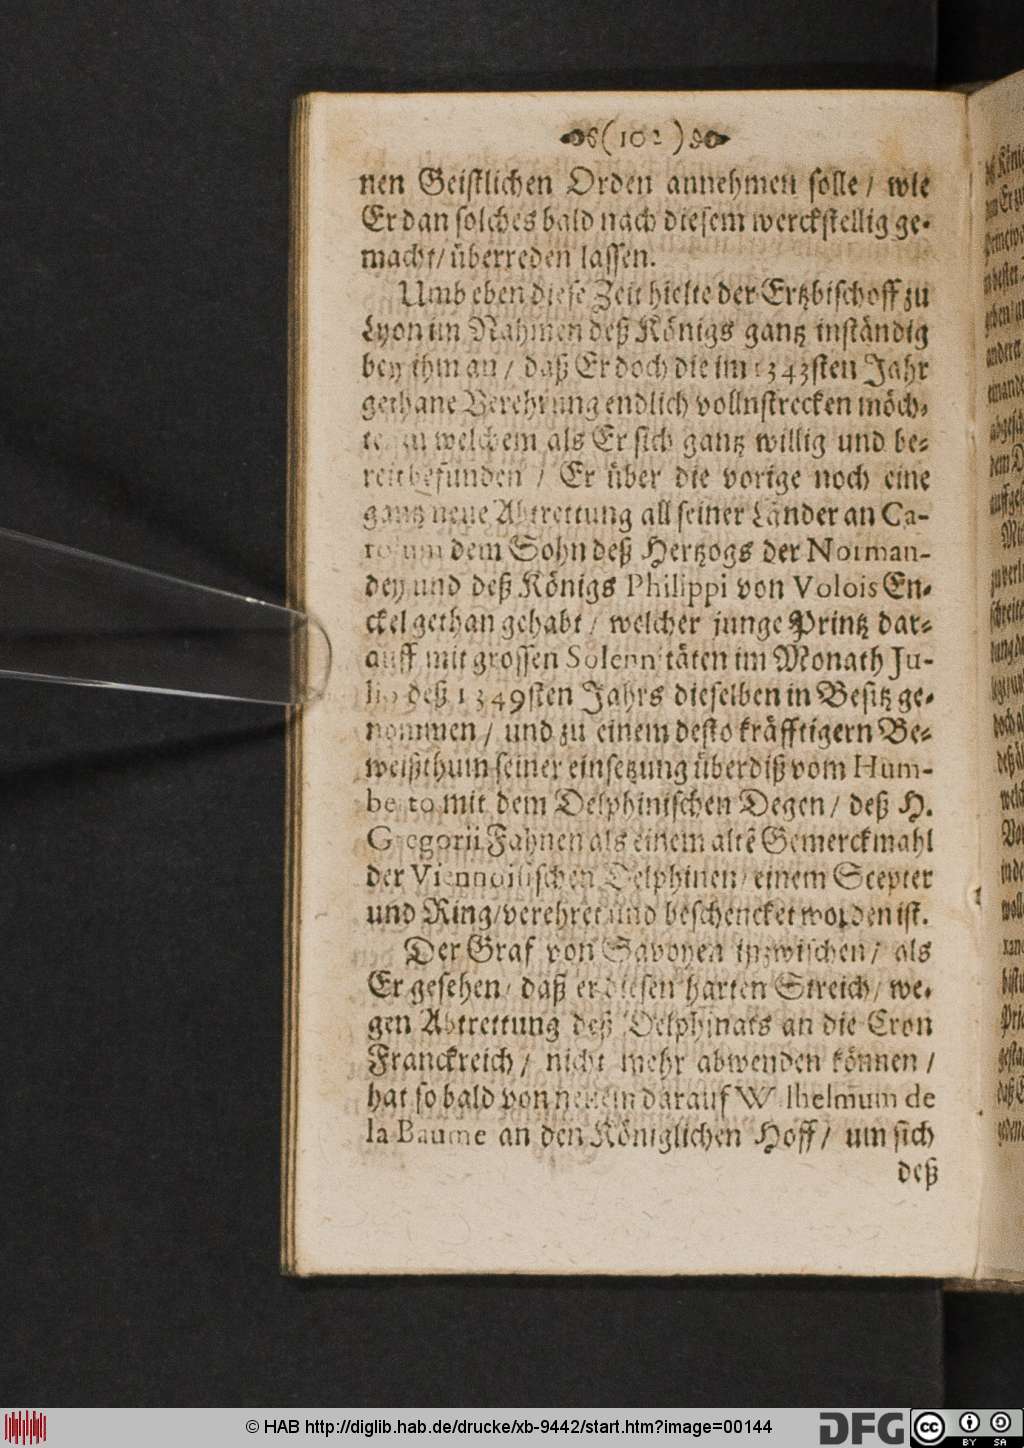 (102)
nen Geistlichen Orden annehmen solle / wie
Er dan solches bald nach diesem werckstellig ge-
macht / überreden lassen.
Umb eben diese Zeit hielte der Ertzbischoff zu
Lyon im Nahmen deß Königs gantz inständig
bey ihm an / daß Er doch die im 1343sten Jahr
gethane Verehrung endlich vollnstrecken möch-
te zu welchem als Er sich gantz willig und be-
reit befunden / Er über die vorige noch eine
gantz neue Abtrettung all seiner Länder an Ca-
rolum dem Sohn deß Hertzogs der Norman-
dey und deß Königs Philippi von Volois En-
ckel gethan gehabt / welcher junge Printz dar-
auff mit grossen Solennitäten im Monath Ju-
lio deß 1349sten Jahrs dieselben in Besitz ge-
nommen / und zu einem desto kräfftigern Be-
weißthum seiner einsetzung überdiß vom Hum-
berto mit dem Delphinischen Degen / deß H.
Gregorii Fahnen als einem altẽ Gemerckmahl
der Viennoisischen Delphinen / einem Scepter
und Ring / verehret und beschencket worden ist.
Der Graf von Savoyen inzwischen / als
Er gesehen / daß er diesen harten Streich / we-
gen Abtrettung deß Delphinats an die Cron
Franckreich / nicht mehr abwenden können /
hat so bald von neuem darauf Wilhelmum de
la Baume an den Königlichen Hoff / um sich
deß
© HAB http://diglib.hab.de/drucke/xb-9442/start.htm?image=00144
DFG
cc BY SA